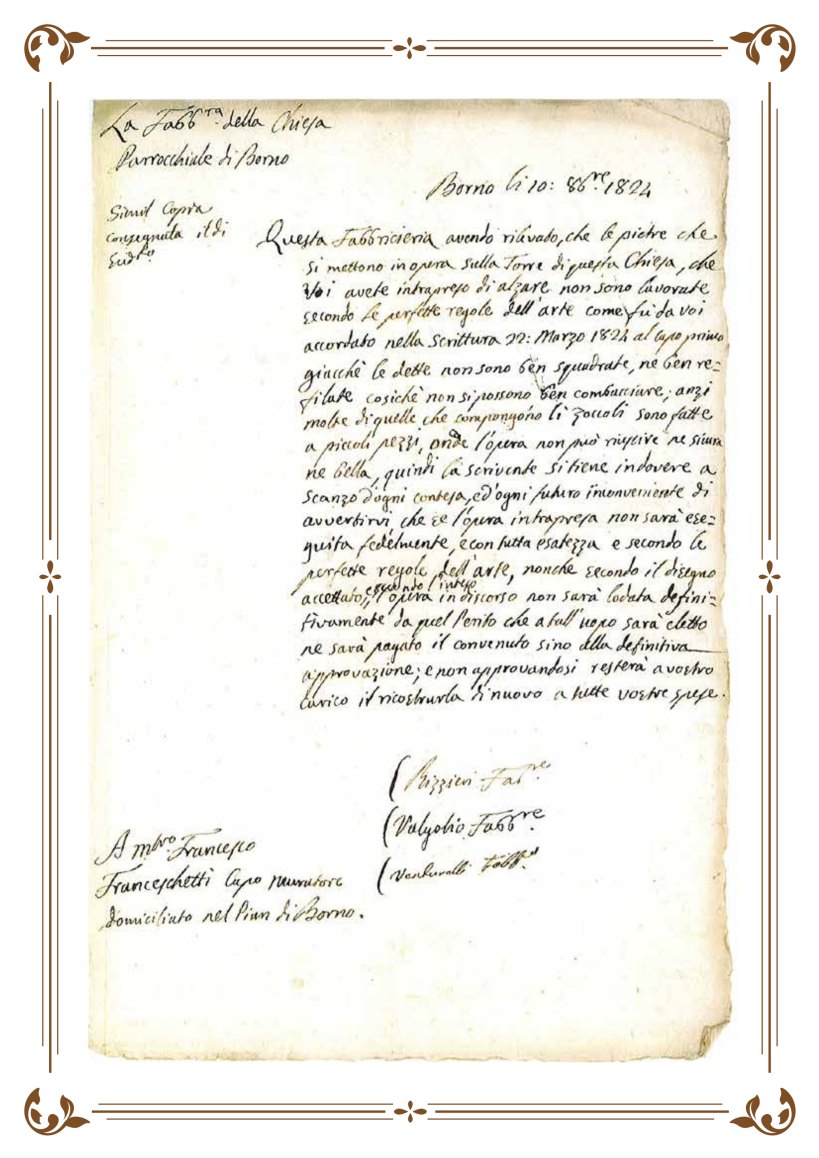 La Fabb.ra della Chiesa
Parrocchiale di Borno
Borno li 10: 8b.re 1824
Simil Copia
consegnata il dì
Sud.to
Questa Fabbricieria avendo rilevato, che le pietre che
si mettono in opera sulla Torre di questa Chiesa, che
Voi avete intrapreso di alzare non sono lavorate
secondo le perfette regole dell'arte come fù da voi
accordato nella Scrittura 22: Marzo 1824 al capo primo
giacchè le dette non sono ben squadrate, ne ben re=
filate cosichè non si possono ben combacciare; anzi
molte di quelle che compongono li zoccoli sono fatte
a piccoli pezzi, onde l'opera non può riuscire ne sicura
ne bella, quindi la scrivente si tiene in dovere a
scanzo d'ogni contesa, ed'ogni futuro inconveniente di
avvertirvi che se l'opera intrapresa non sarà ese=
guita fedelmente, e con tutta esatezza e secondo le
perfette regole dell'arte, nonchè secondo il disegno
accettato, essendo l'inteso
l'opera in discorso non sarà lodata defini=
tivamente da quel Perito che a tall'uopo sarà eletto
ne sarà pagato il convenuto sino alla definitiva
approvazione; e non approvandosi resterà a vostro
carico il ricostrurla di nuovo a tutte vostre spese.
(Rizzieri Fab.re
(Valgolio Fabb.re
A M.tro Francesco
Franceschetti Capo muratore
domiciliato nel Pian di Borno.